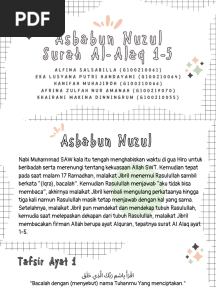 PDF
Asbabun Nuzul
Surah Al-Alaq 1-5
ALFINA SALSABILLA (G100210061)
EKA LUSYANA PUTRI HANDAYANI (G100210064)
HANIFAH MUHAJIROH (G100210066)
AFRINA ZULFAH NUR AMANAH (G100210070)
KHAIRANI MAKINA DINNINGRUM (G100210055)
Asbabun Nuzul
Nabi Muhammad SAW kala itu tengah menghabiskan waktu di gua Hiro untuk
beribadah serta merenung tentang kekuasaan Allah SWT. Kemudian tepat
pada saat malam 17 Ramadhan, malaikat Jibril menemui Rasulullah sambil
berkata "(Iqra), bacalah". Kemudian Rasulullah menjawab "aku tidak bisa
membaca", akhirnya malaikat Jibril kembali mengulang perkataanya hingga
tiga kali namun Rasulullah masih tetap menjawab dengan hal yang sama.
Setelahnya, malaikat Jibril pun mendekat dan mendekap tubuh Rasulullah,
kemuda saat melepaskan dekapan dari tubuh Rasulullah, malaikat Jibril
membacakan firman Allah berupa ayat Alquran, tepatnya surat Al Alaq ayat
1-5.
Tafsir Ayat 1
اقْرَأْ بِاسْمِ رَبِّكَ الَّذِي خَلَقَ
"Bacalah dengan (menyebut) nama Tuhanmu Yang menciptakan."